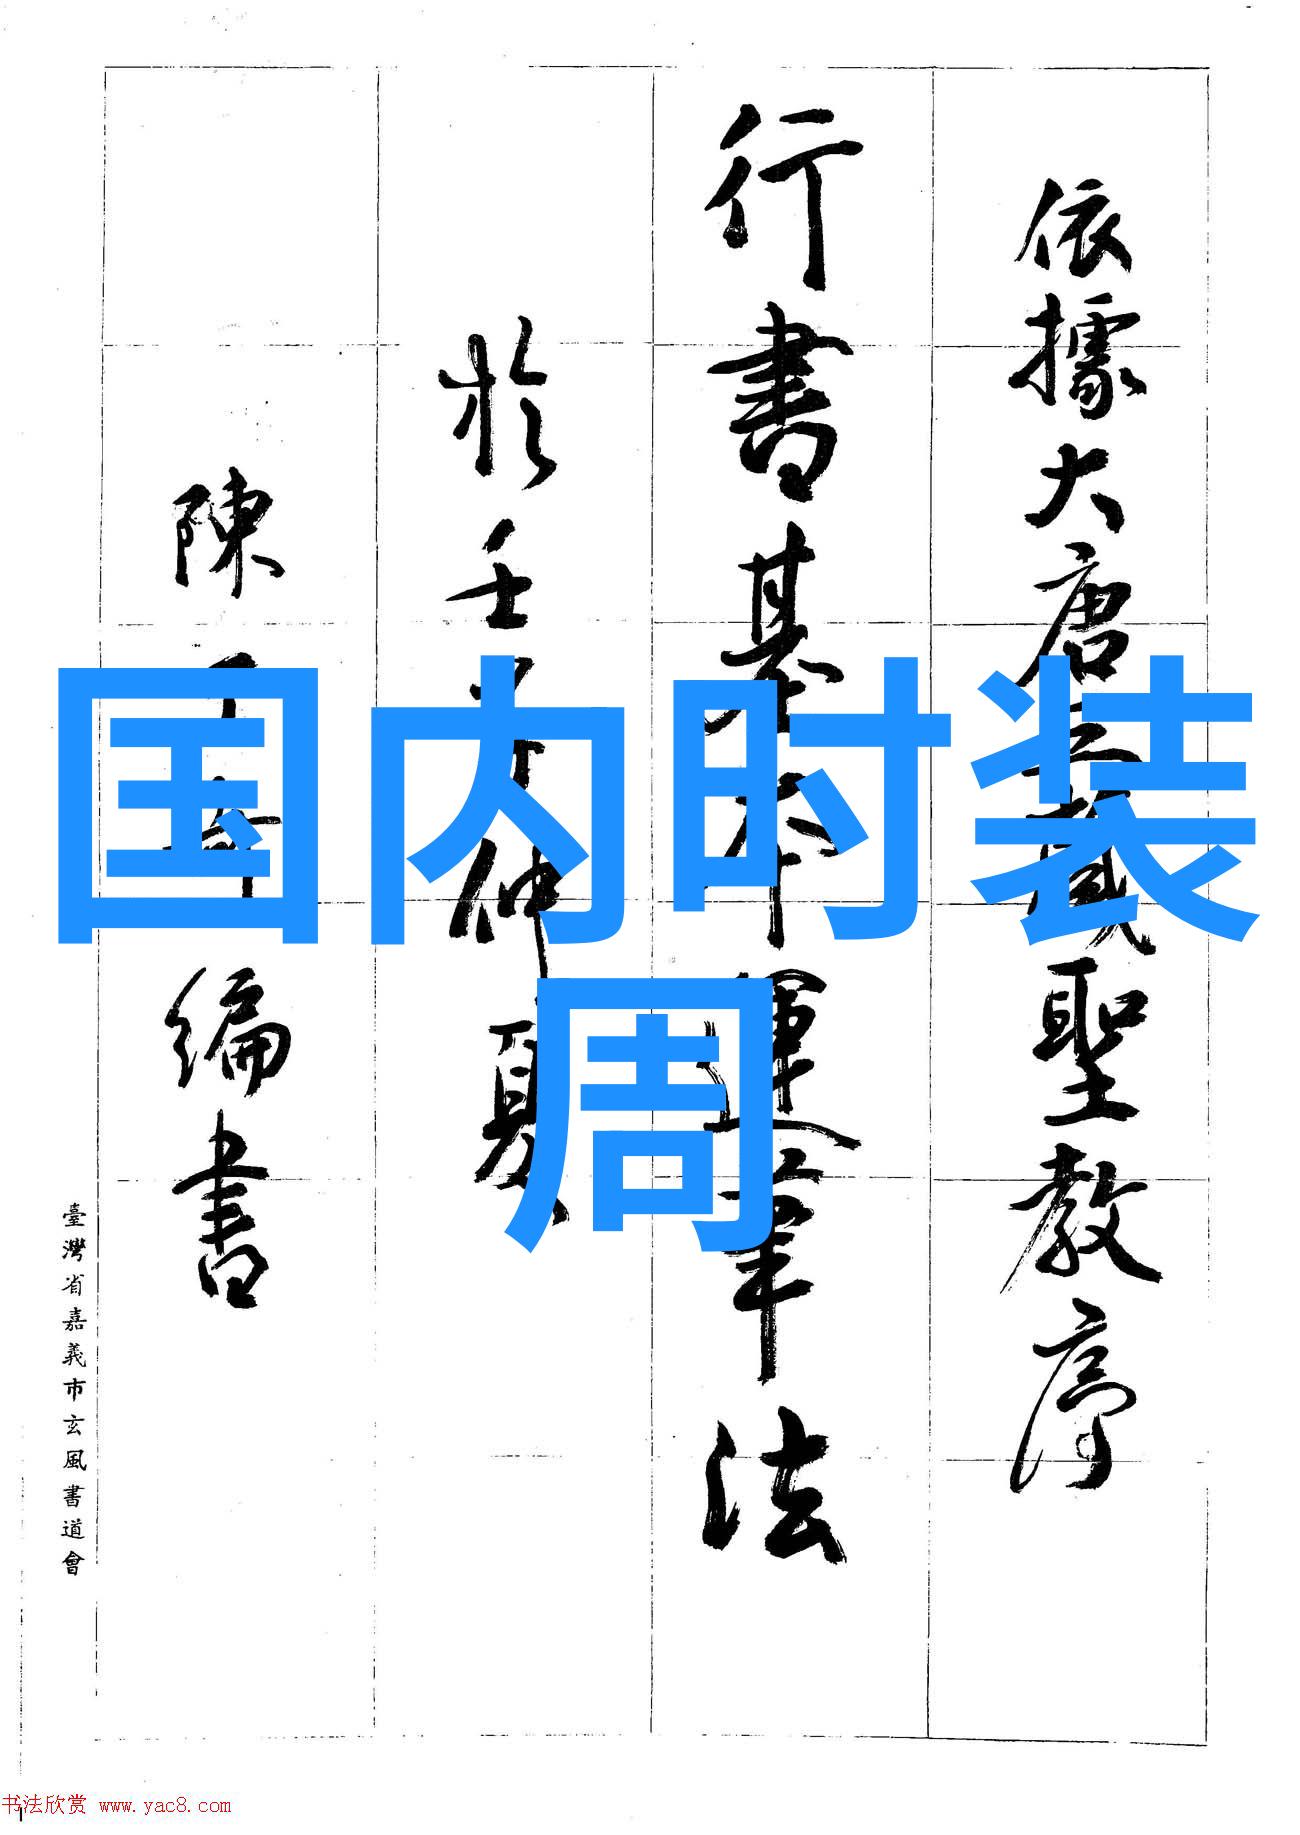 依據大唐三藏聖教序
行書基本運筆法
於壬子仲夏
陳編書
臺灣省嘉義市玄風書道會
国内时装
周
书法欣赏 www.yac8.com
1